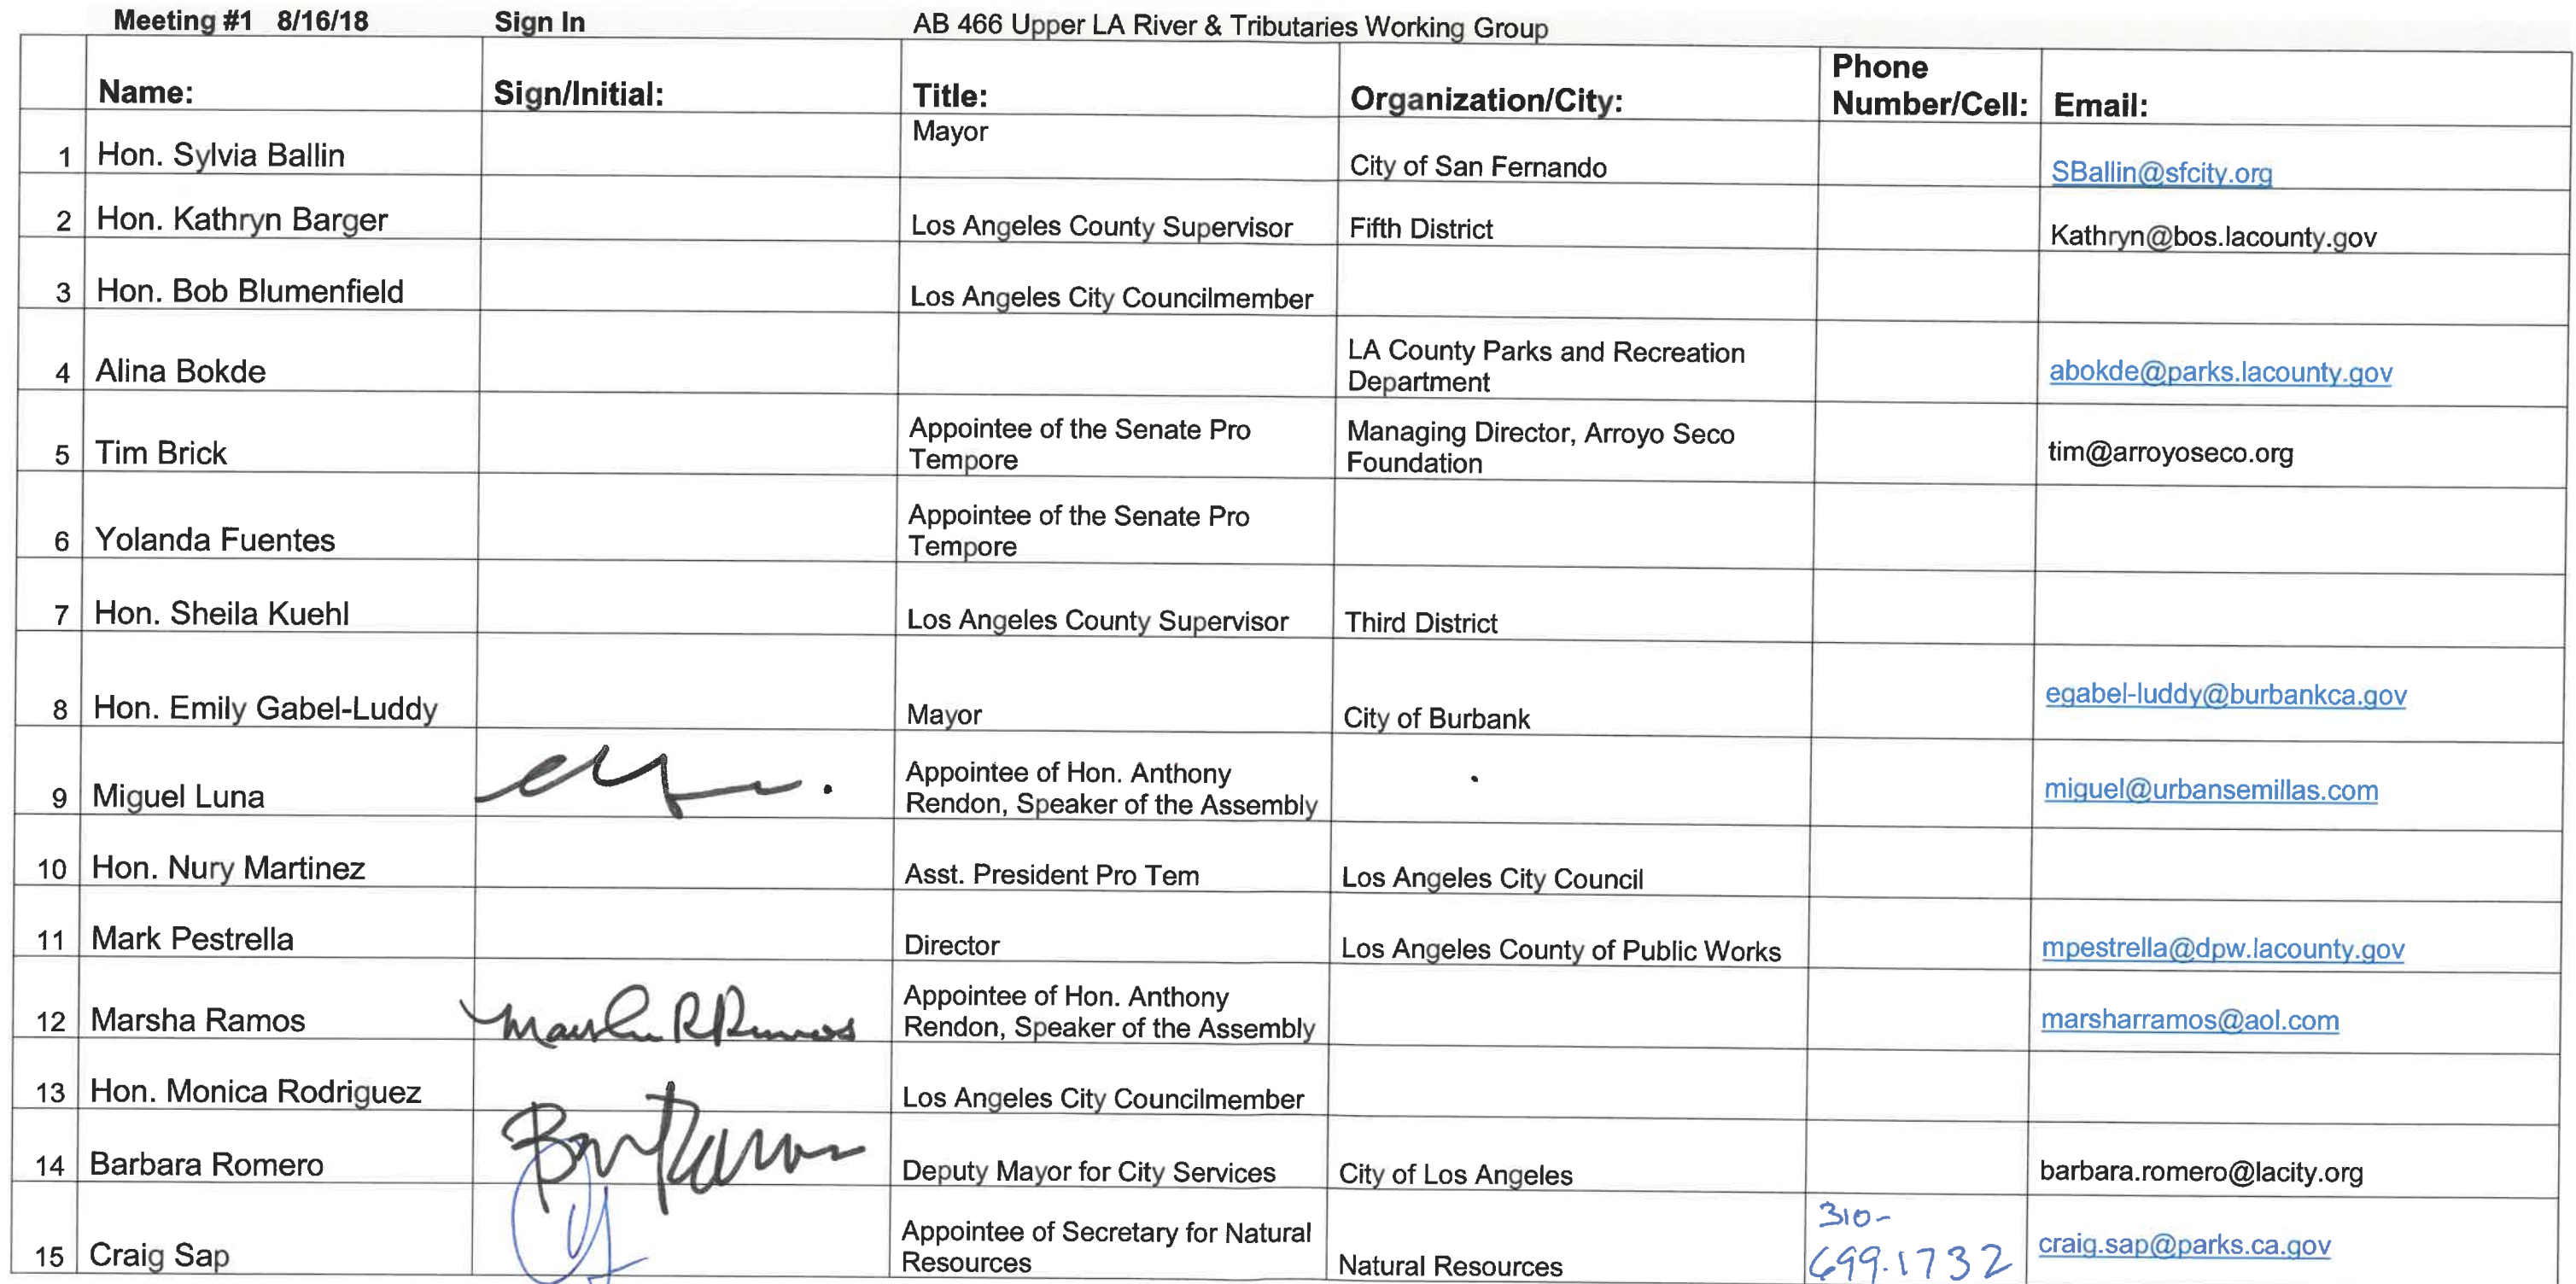 Meeting #1 8/16/18 Sign In AB 466 Upper LA River & Tributaries Working Group
Name: Sign/Initial: Title: Organization/City: Phone Number/Cell: Email:
1 Hon. Sylvia Ballin Mayor City of San Fernando SBallin@sfcity.org
2 Hon. Kathryn Barger Los Angeles County Supervisor Fifth District Kathryn@bos.lacounty.gov
3 Hon. Bob Blumenfield Los Angeles City Councilmember
4 Alina Bokde LA County Parks and Recreation Department abokde@parks.lacounty.gov
5 Tim Brick Appointee of the Senate Pro Tempore Managing Director, Arroyo Seco Foundation tim@arroyoseco.org
6 Yolanda Fuentes Appointee of the Senate Pro Tempore
7 Hon. Sheila Kuehl Los Angeles County Supervisor Third District
8 Hon. Emily Gabel-Luddy Mayor City of Burbank egabel-luddy@burbankca.gov
9 Miguel Luna Appointee of Hon. Anthony Rendon, Speaker of the Assembly miguel@urbansemillas.com
10 Hon. Nury Martinez Asst. President Pro Tem Los Angeles City Council
11 Mark Pestrella Director Los Angeles County of Public Works mpestrella@dpw.lacounty.gov
12 Marsha Ramos Marsha R Ramos Appointee of Hon. Anthony Rendon, Speaker of the Assembly marsharramos@aol.com
13 Hon. Monica Rodriguez Los Angeles City Councilmember
14 Barbara Romero Deputy Mayor for City Services City of Los Angeles barbara.romero@lacity.org
15 Craig Sap Appointee of Secretary for Natural Resources Natural Resources 310-699.1732 craig.sap@parks.ca.gov